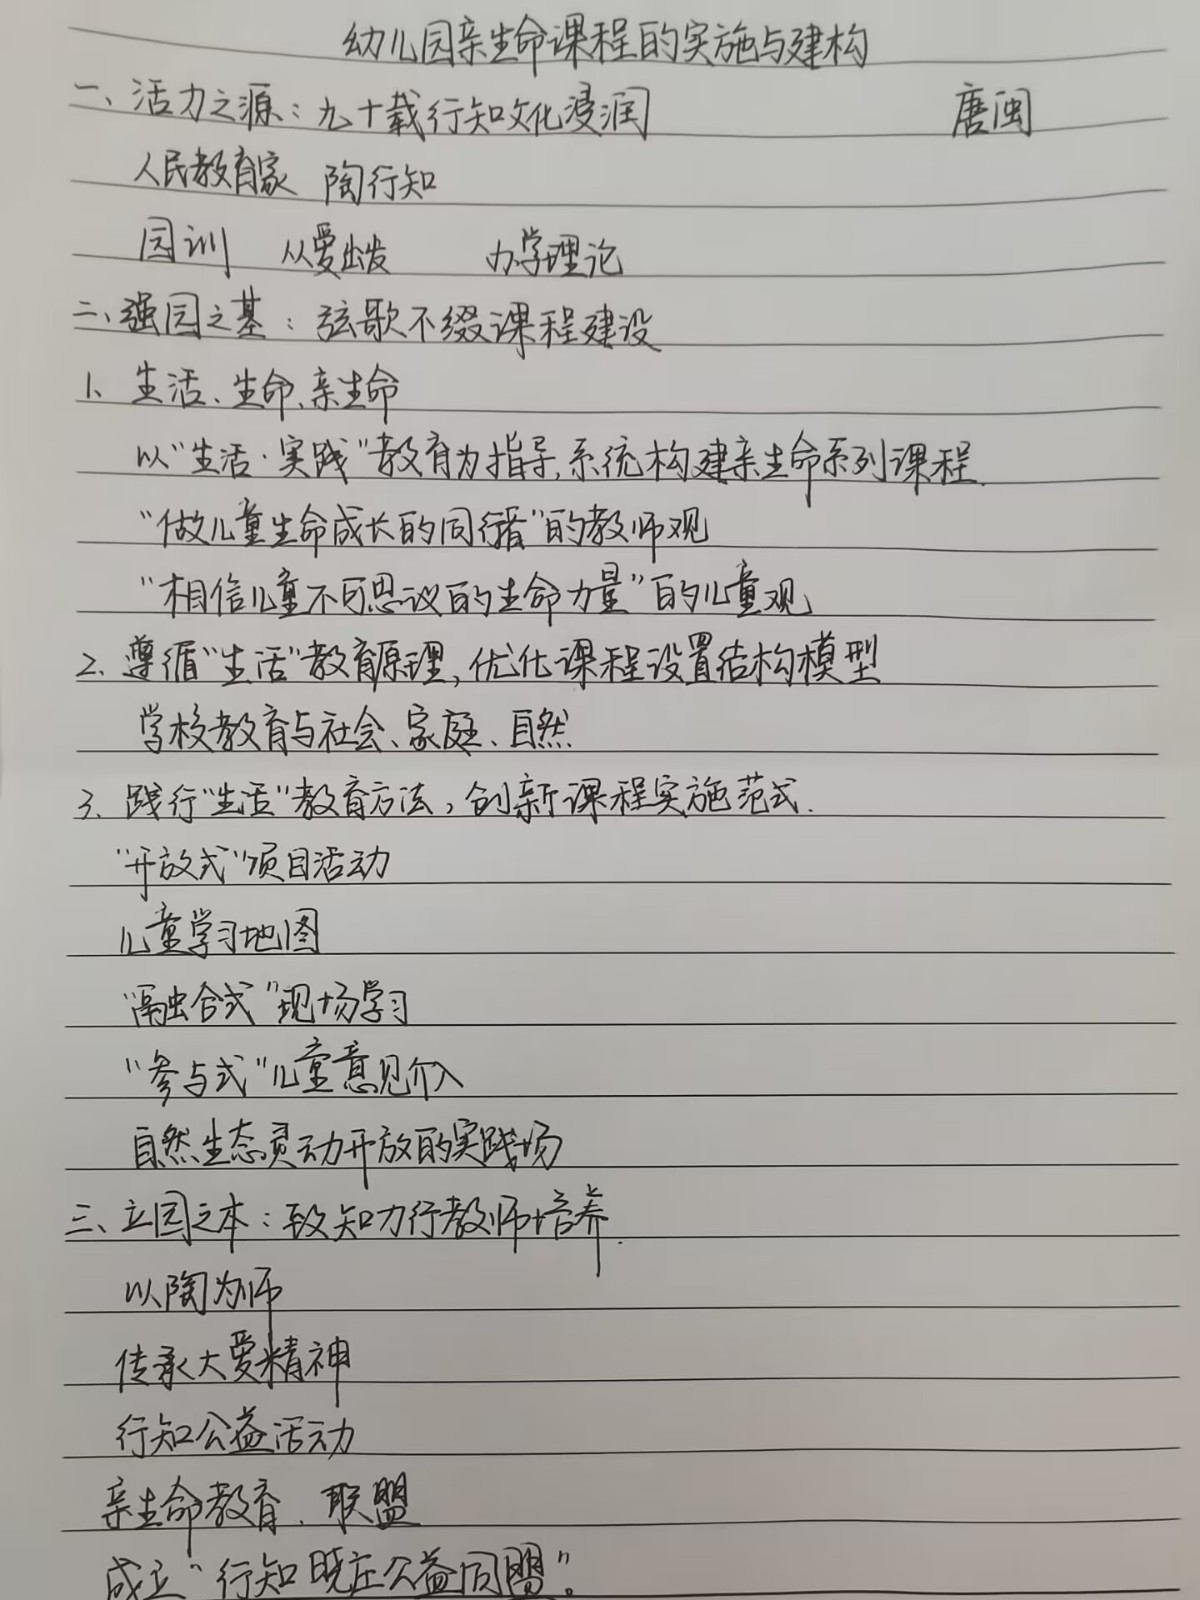 幼儿园亲生命课程的实施与建构
一、活力之源：九十载行知文化浸润 唐闽
人民教育家 陶行知
园训 从爱出发 办学理论
二、强园之基：弦歌不缀课程建设
1、生活、生命、亲生命
以“生活·实践”教育为指导,系统构建亲生命系列课程.
“做儿童生命成长的同行者”的教师观
“相信儿童不可思议的生命力量”的儿童观
2、遵循“生活”教育原理,优化课程设置结构模型
学校教育与社会、家庭、自然
3、践行“生活”教育方法,创新课程实施范式.
“开放式”项目活动
儿童学习地图
“融合式”现场学习
“参与式”儿童意见介入
自然生态灵动开放的实践场
三、立园之本：致知力行教师培养.
以陶为师
传承大爱精神
行知公益活动
亲生命教育、联盟
成立“行知晓庄公益同盟”。